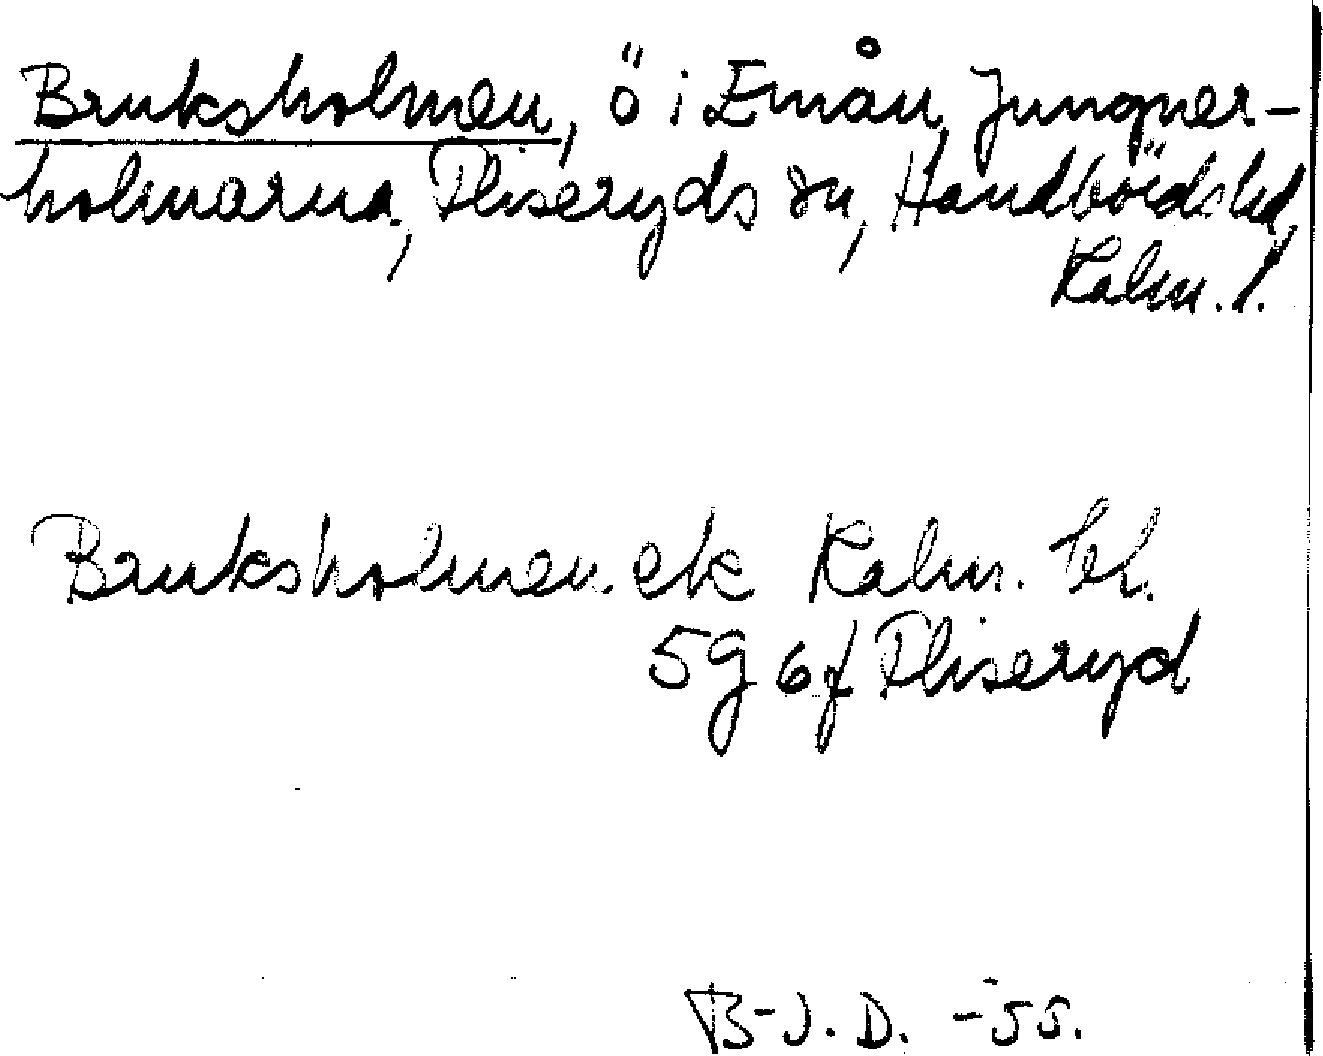 Bruksholmen, ö i Emån, Jungner-
holmarna, Fliseryds sn, Handbörds hd,
Kalm. l.
Bruksholmen. ek Kalm. bl.
5g 6f Fliseryd
B-J. D. -55.